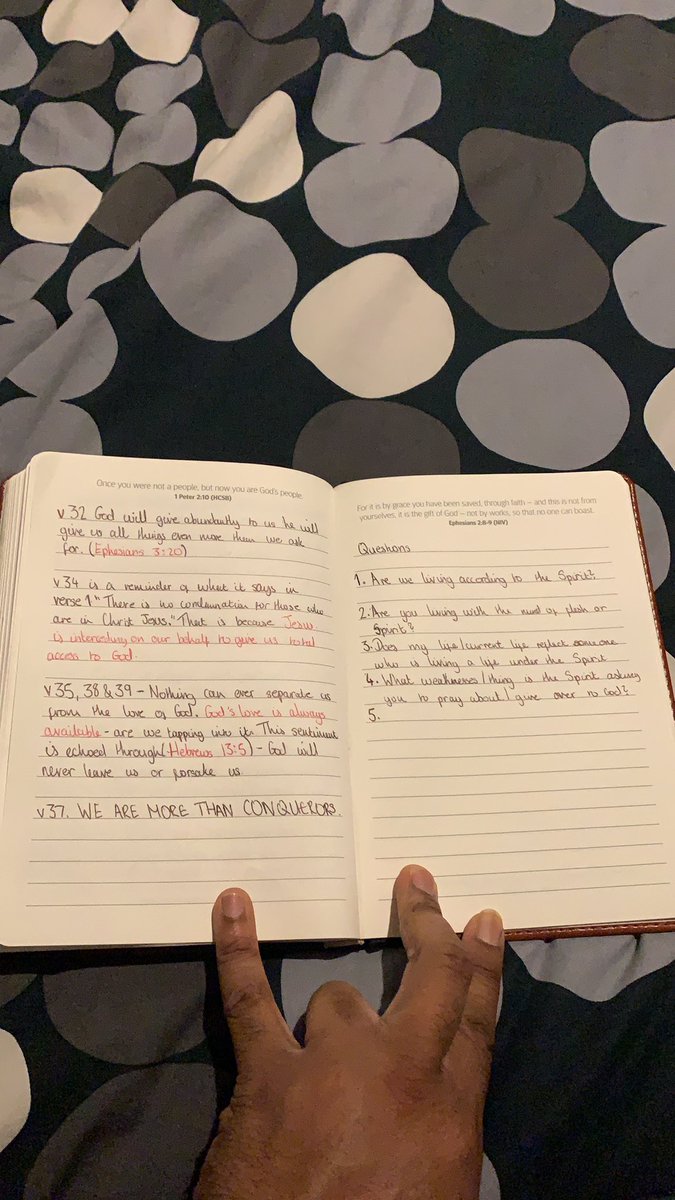 Once you were not a people, but now you are God's people.
1 Peter 2:10 (HCSB)
v32 God will give abundantly to us he will
give us all things even more than we ask
for. (Ephesians 3:20)
v34 is a reminder of what it says in
verse 1 "There is no condemnation for those who
are in Christ Jesus." That is because Jesus
is interceding on our behalf to give us total
access to God.
v35, 38 & 39 - Nothing can ever separate us
from the love of God. God's love is always
available - are we tapping into it. This sentiment
is echoed through (Hebrews 13:5) - God will
never leave us or forsake us
v37. WE ARE MORE THAN CONQUERORS.
For it is by grace you have been saved, through faith – and this is not from
yourselves, it is the gift of God – not by works, so that no one can boast.
Ephesians 2:8-9 (NIV)
Questions
1. Are we living according to the Spirit?
2. Are you living with the mind of flesh or
Spirit?
3. Does my life/current life reflect someone
who is living a life under the Spirit
4. What weaknesses/thing is the Spirit asking
you to pray about/give over to God?
5.